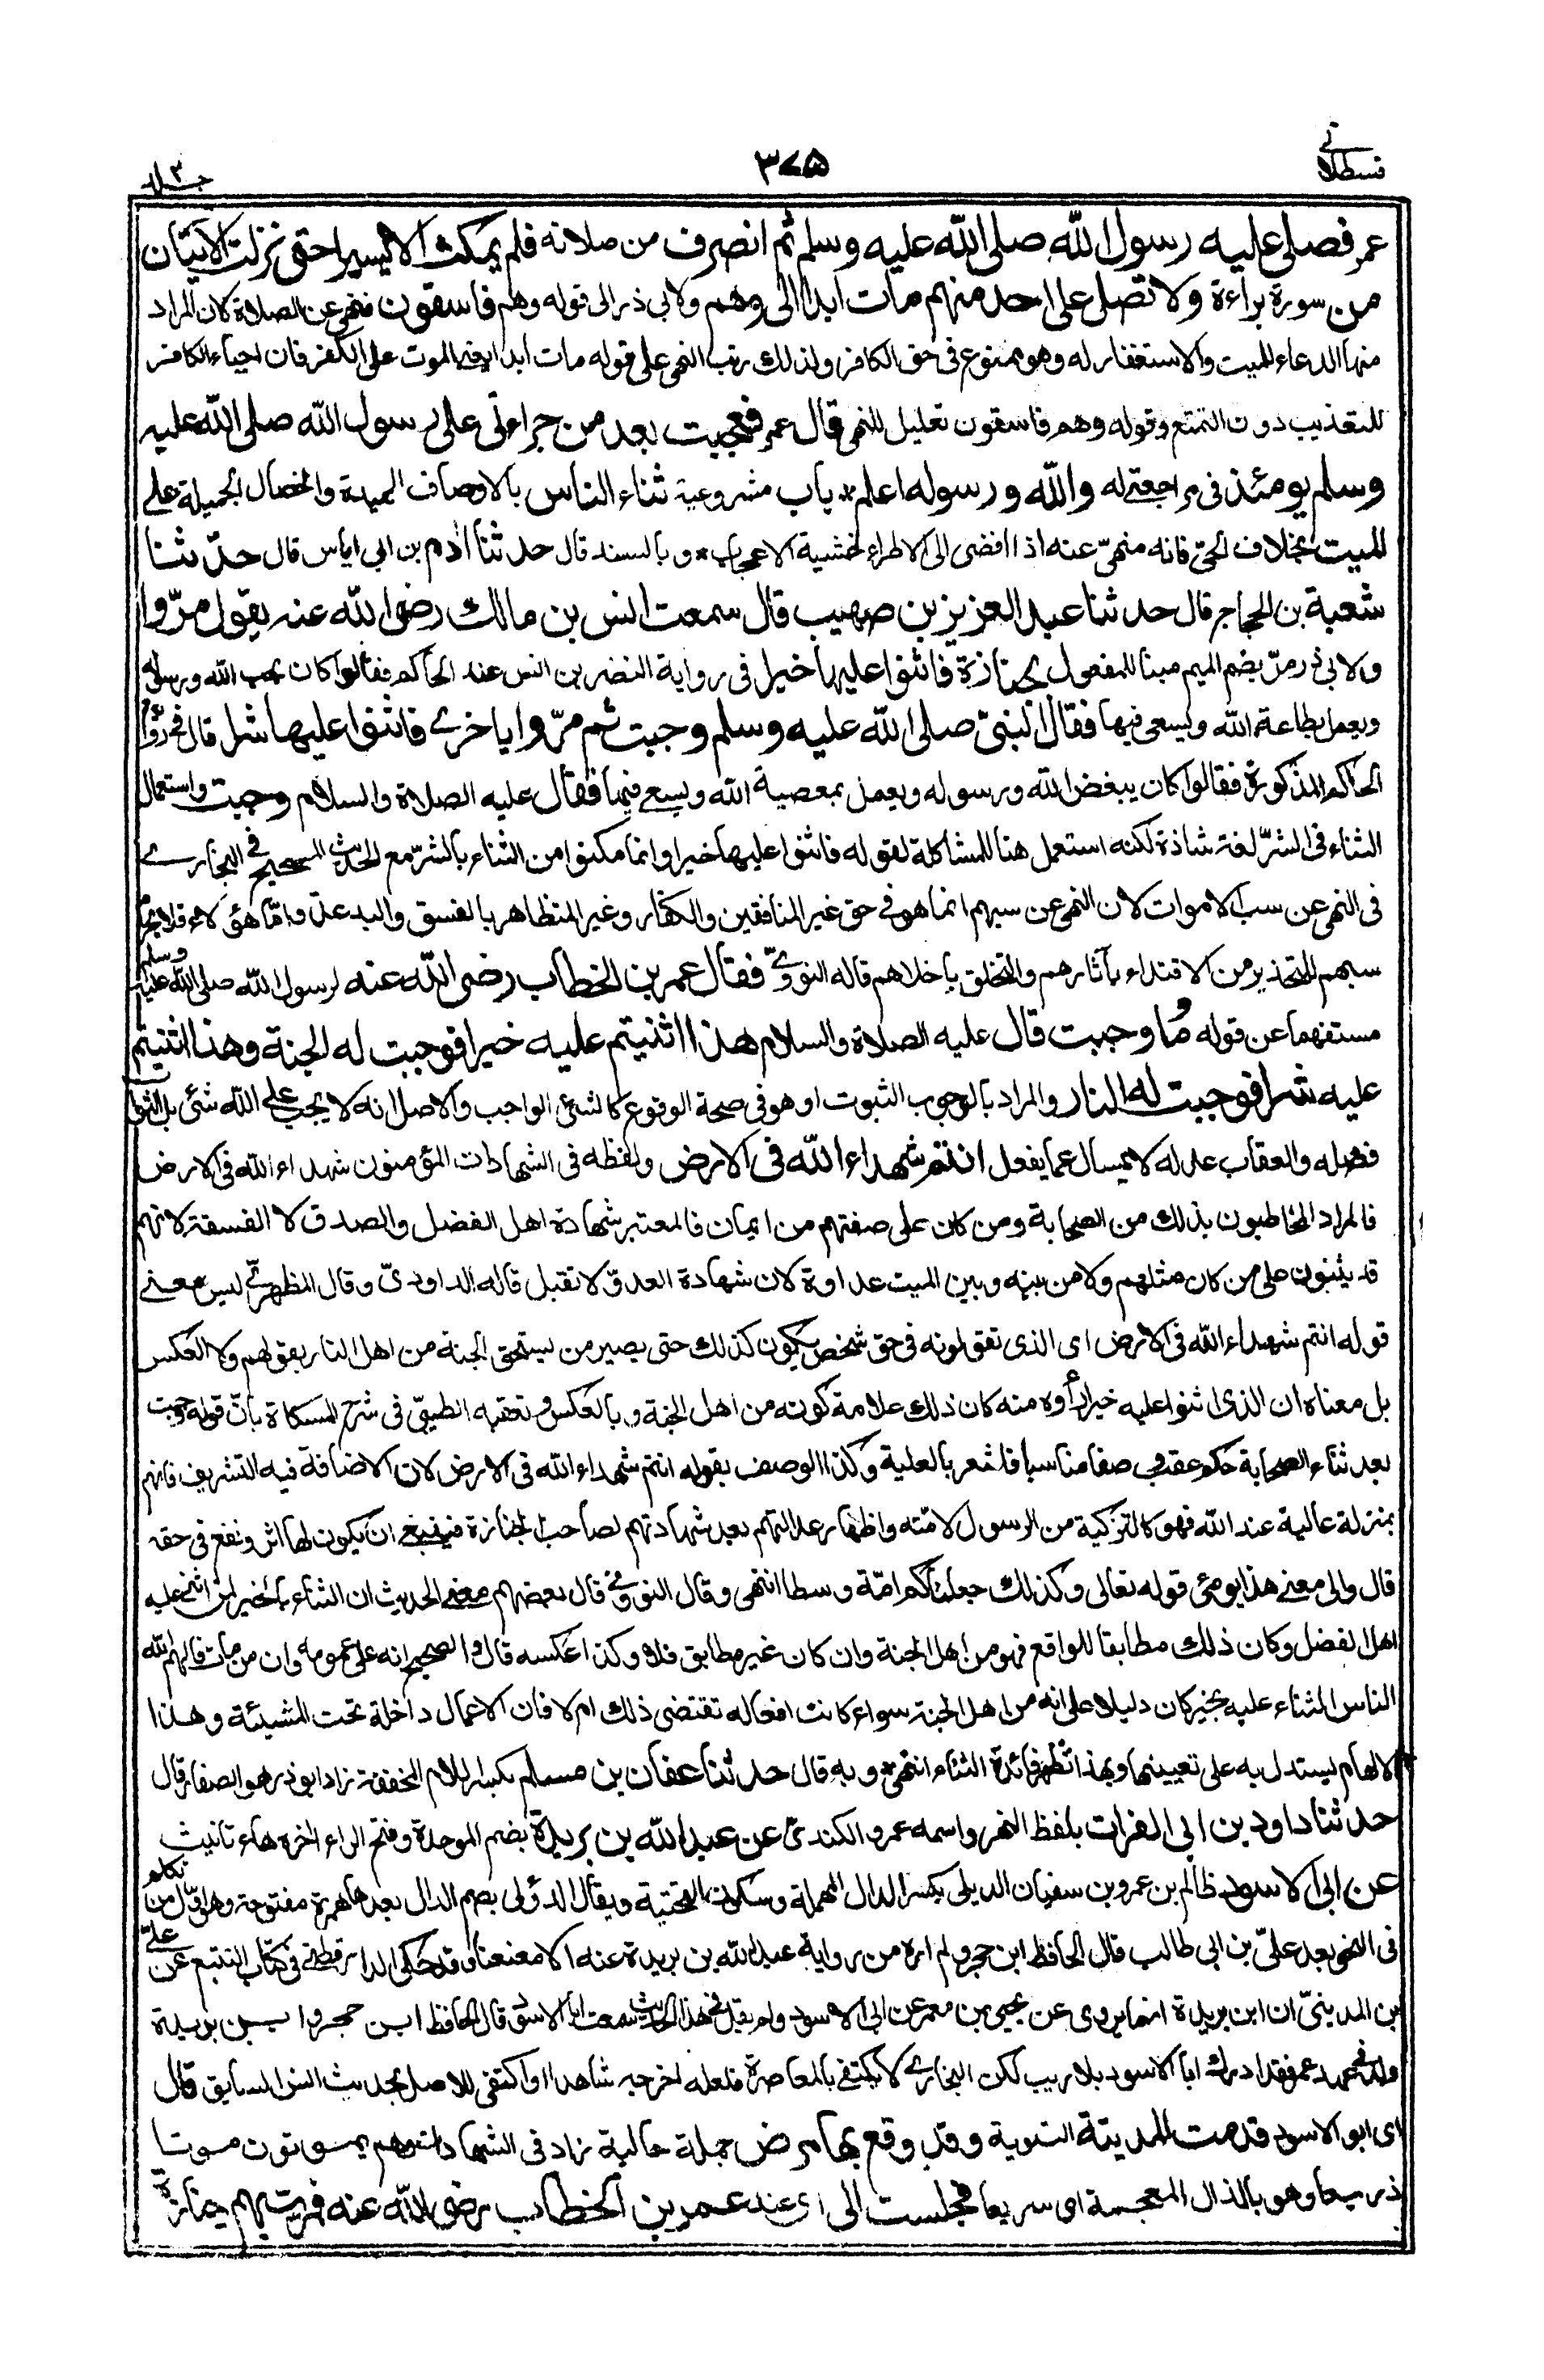 قسطلانے
٣٧٥
جلد ٣
عمر فصلى عليه رسول الله صلى الله عليه وسلم ثم انصرف من صلاته فلم يمكث الا يسيرا حتى نزلت الآيتان
من سورة براءة ولا تصل على احد منهم مات ابدا الى وهم ولابي ذر الى قوله وهم فاسقون فنهى عن الصلاة كان المراد
منها الدعاء للميت والاستغفار له وهو ممنوع فى حق الكافر ولذلك رتب النهى على قوله مات ابدا يعنى الموت على الكفر فان احياء الكافر
للتعذيب دون التمتع وقوله وهم فاسقون تعليل للنهى قال عمر فعجبت بعد من جراءتى على رسول الله صلى الله عليه
وسلم يومئذ فى مراجعتى له والله ورسوله اعلم * باب مشروعية ثناء الناس بالاوصاف الحميدة والخصال الجميلة على
الميت بخلاف الحىّ فانه منهىّ عنه اذا افضى الى الاطراء لخشية الاعجاب * وبالسند قال حدثنا اٰدم بن ابي اياس قال حدّثنا
شعبة بن الحجاج قال حدثنا عبد العزيز بن صهيب قال سمعت انس بن مالك رضى الله عنه يقول مرّوا
ولابي ذر مرّ بضم الميم مبنا للمفعول بجنازة فاثنوا عليها خيرا فى رواية النضر بن انس عند الحاكم فقالوا كان يحب الله ورسوله
ويعمل بطاعة الله ويسعى فيها فقال النبىّ صلى الله عليه وسلم وجبت ثم مرّوا باخرے فاثنوا عليها شرا قال فى رواية
الحاكم المذكورة فقالوا كان يبغض الله ورسوله ويعمل بمعصية الله ويسعے فيها فقال عليه الصلاة والسلام وجبت واستعمال
الثناء فى الشرّ لغة شاذة لكنه استعمل هنا للمشاكلة لقوله فاثنوا عليها خيرا وانما مكنوا من الثناء بالشرّ مع الحديث الصحيح فى البخارے
فى النهى عن سب الاموات لان النهى عن سبهم انما هو فے حق غير المنافقين والكفار وغير المتظاهر بالفسق والبدعة وامّا هؤلاء فلا يحرم
سبهم للتحذير من الاقتداء بآثارهم والتخلق باخلاهم قاله النووىّ فقال عمر بن الخطاب رضى الله عنه لرسول الله صلى الله عليه وسلم
مستفهما عن قوله مُا وجبت قال عليه الصلاة والسلام هذا اثنيتم عليه خيرا فوجبت له الجنة وهذا اثنيتم
عليه شرا فوجبت له النار والمراد بالوجوب الثبوت او هو فى صحة الوقوع كالشئ الواجب والاصل انه لا يجب على الله شئ بل الثواب
فضله والعقاب عدله لا يسال عما يفعل انتم شهداء الله فى الارض ولفظه فى الشهادات المؤمنون شهداء الله فى الارض
فالمراد المخاطبون بذلك من الصحابة ومن كان على صفتهم من ايمان فالمعتبر شهادة اهل الفضل والصدق لا الفسقة لانهم
قد يثنون على من كان مثلهم ولا من بينه وبين الميت عداوة لان شهادة العدوّ لا تقبل قاله الداودىّ وقال المظهرىّ ليس معنے
قوله انتم شهداء الله فى الارض اى الذى تقولونه فى حق شخص يكون كذلك حتى يصير من يستحق الجنة من اهل النار بقولهم ولا العكس
بل معناه ان الذى اثنوا عليه خيرا رأوه منه كان ذلك علامة كونه من اهل الجنة وبالعكس وتعقبه الطيبىّ فى شرح المسكاة بانّ قوله وجبت
بعد ثناء الصحابة حكم عقب وصفا مناسبا فاشعر بالعلية وكذا الوصف بقوله انتم شهداء الله فى الارض لان الاضافة فيه التشريف فانهم
بمنزلة عالية عند الله فهو كالتزكية من الرسول لامّته واظهار عدالتهم بعد شهادتهم لصاحب الجنازة فينبغے ان يكون لها اثر ونفع فى حقه
قال والى معنے هذا يومئ قوله تعالى وكذلك جعلناكم امّة وسطا انتهى وقال النووىّ قال بعضهم معنے الحديث ان الثناء بالخير لمن اثنى عليه
اهل الفضل وكان ذلك مطابقا للواقع فهو من اهل الجنة وان كان غير مطابق فلا وكذا عكسه قال والصحيح انه على عمومه وان من مات فالهم الله
الناس الثناء عليه بخير كان دليلا على انه من اهل الجنة سواء كانت افعاله تقتضى ذلك ام لا فان الاعمال داخلة تحت المشيئة وهذا
الالهام يستدل به على تعيينها وبهذا تظهر فائدة الثناء انتهى * وبه قال حدثنا عفان بن مسلم بكسر اللام المخففة زاد ابو ذر هو الصفار قال
حدثنا داود بن ابي الفرات بلفظ النهر واسمه عمرو الكندىّ عن عبد الله بن بريدة بضم الموحدة وفتح الراء اخره هاء تانيث
عن ابى الاسود ظالم بن عمرو بن سفيان الديلى بكسر الدال المهملة وسكون التحتية ويقال الدؤلى بضم الدال بعدها همزة مفتوحة وهو اوّل من تكلم
فى النحو بعد علىّ بن ابى طالب قال الحافظ ابن حجر ولم اره من رواية عبد الله بن بريدة عنه الا معنعنا وقد حكى الدارقطنى فى كتاب التتبع عن علىّ
بن المدينىّ ان ابن بريدة انما يروى عن يحيى بن معمر عن ابى الاسود ولم يقل فى هذا الحديث سمعت ابا الاسود قال الحافظ ابن حجر وابن بريدة
ولد فى عهد عمر فقد ادرك ابا الاسود بلا ريب لكن البخارے لا يكتفے بالمعاصرة فلعله اخرجه شاهدا او اكتفى للاصل بحديث انس السابق قال
اى ابو الاسود قدمت المدينة النبوية وقد وقع بها مرض جملة حالية زاد فى الشهادات وهم يموتون موتا
ذريعا وهو بالذال المعجمة اى سريعا فجلست الى اى عند عمر بن الخطاب رضى الله عنه فمرت بهم جنازة